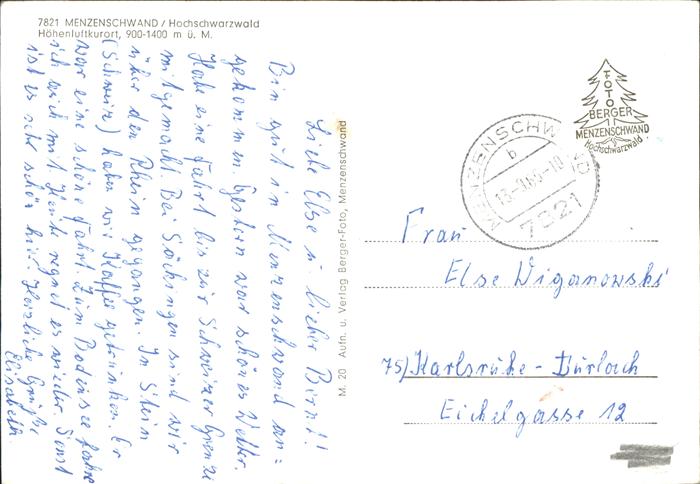 7821 MENZENSCHWAND / Hochschwarzwald
Höhenluftkurort, 900-1400 m ü. M.
Liebe Else u. lieber Bernt!
Bin gut in Menzenschwand an=
gekommen. Gestern war schönes Wetter.
Habe eine Fahrt bis zur Schweizer Grenze
mitgemacht. Bei Säckingen sind wir
über den Rhein gegangen. In Stein
(Schweiz) haben wir Kaffee getrunken. Er
war eine schöne Fahrt. Zum Bodensee fahre
ich auch mit. Heute regnet es wieder. Sonst
ist es sehr schön hier. Herzliche Grüße
Elisabeth
M. 20 Aufn. u. Verlag Berger-Foto, Menzenschwand
FOTO
BERGER
MENZENSCHWAND
Hochschwarzwald
MENZENSCHW
b
7821
Frau
Else Wiganowski
75) Karlsruhe - Durlach
Eichelgasse 12